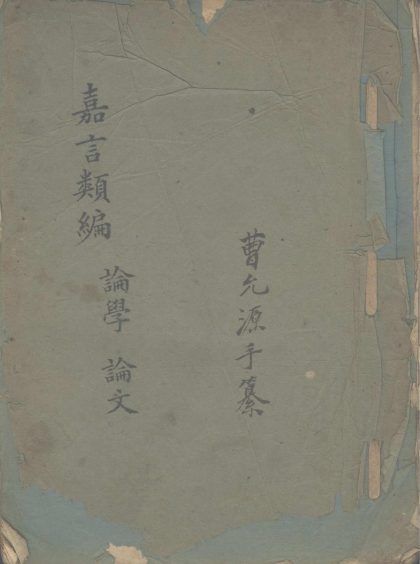 曹允源手纂
嘉言類編
論學 論文